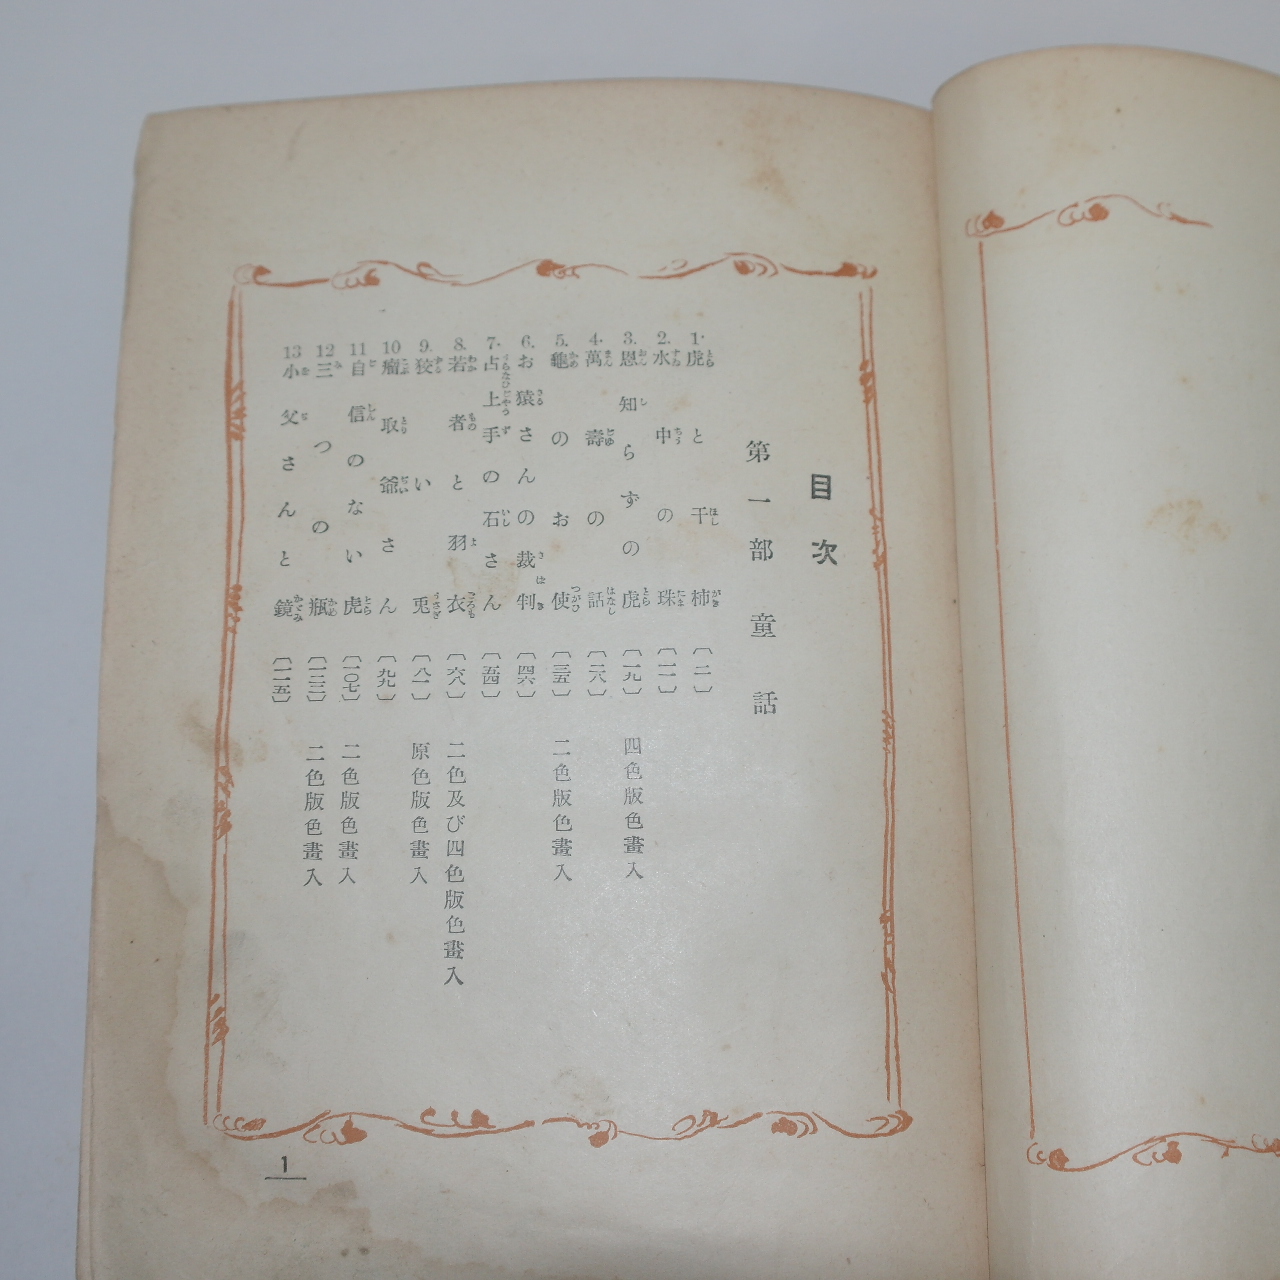 目次
第一部 童話
1. 虎と干柿 〔二〕
2. 水中の珠 〔一一〕
3. 恩知らずの虎 〔一九〕 四色版色畫入
4. 萬壽の話 〔二六〕
5. 龜のお使 〔三五〕 二色版色畫入
6. お猿さんの裁判 〔四六〕
7. 占上手の石さん 〔五四〕
8. 若者と羽衣 〔六八〕 二色及び四色版色畫入
9. 狡い兎 〔八一〕 原色版色畫入
10 瘤取爺さん 〔九九〕
11 自信のない虎 〔一〇七〕 二色版色畫入
12 三つの瓶 〔一三三〕 二色版色畫入
13 小父さんと鏡 〔一一五〕
1